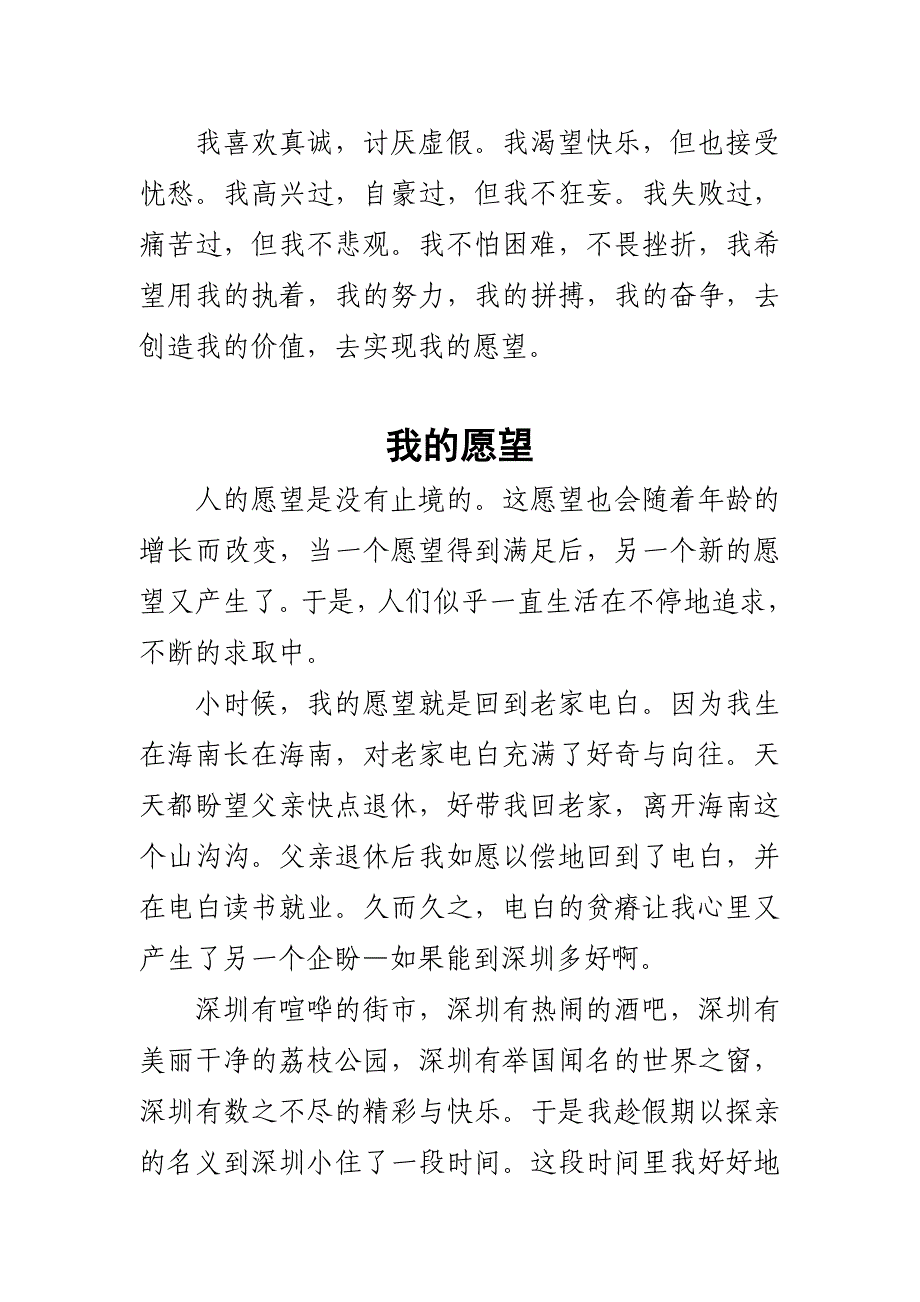 我喜欢真诚，讨厌虚假。我渴望快乐，但也接受
忧愁。我高兴过，自豪过，但我不狂妄。我失败过，
痛苦过，但我不悲观。我不怕困难，不畏挫折，我希
望用我的执着，我的努力，我的拼搏，我的奋争，去
创造我的价值，去实现我的愿望。
我的愿望
人的愿望是没有止境的。这愿望也会随着年龄的
增长而改变，当一个愿望得到满足后，另一个新的愿
望又产生了。于是，人们似乎一直生活在不停地追求，
不断的求取中。
小时候，我的愿望就是回到老家电白。因为我生
在海南长在海南，对老家电白充满了好奇与向往。天
天都盼望父亲快点退休，好带我回老家，离开海南这
个山沟沟。父亲退休后我如愿以偿地回到了电白，并
在电白读书就业。久而久之，电白的贫瘠让我心里又
产生了另一个企盼—如果能到深圳多好啊。
深圳有喧哗的街市，深圳有热闹的酒吧，深圳有
美丽干净的荔枝公园，深圳有举国闻名的世界之窗，
深圳有数之不尽的精彩与快乐。于是我趁假期以探亲
的名义到深圳小住了一段时间。这段时间里我好好地